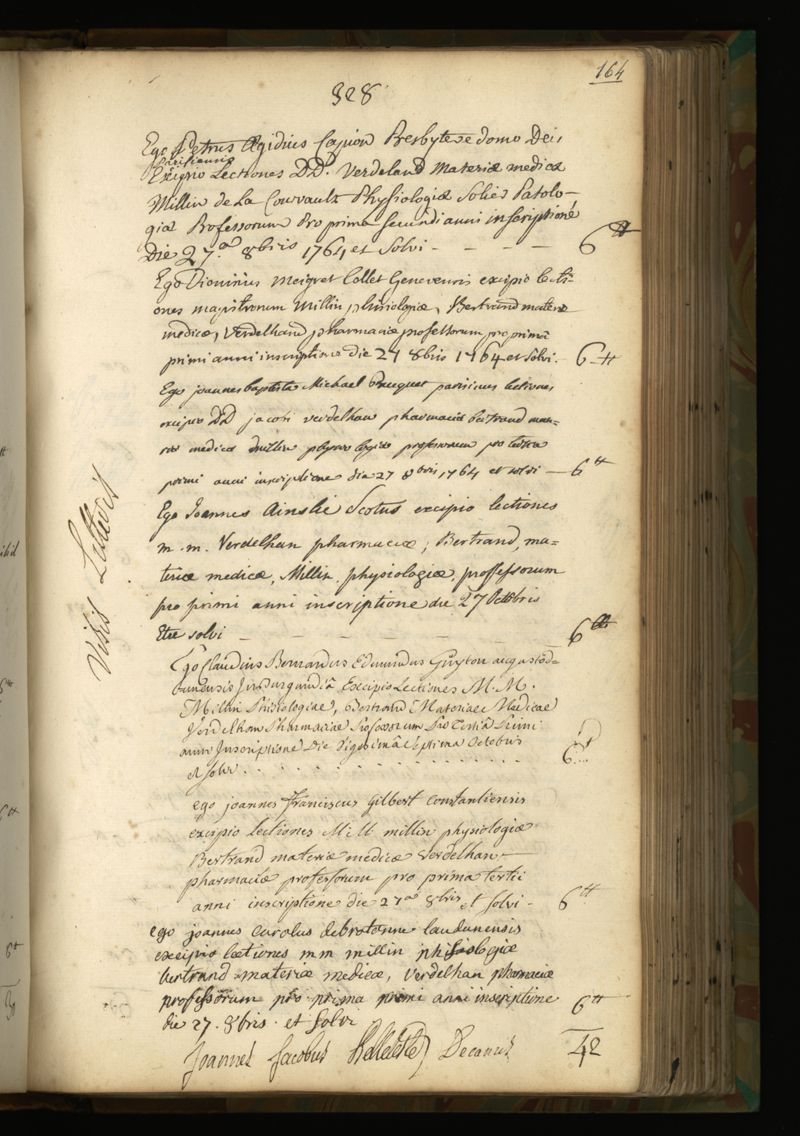 164
328
Ego Petrus Ægidius Capion Presbyter e domo Dei,
parisiensis
Excipio Lectiones DD. Verdeland Materiæ medicæ
Millin de La Courvault Physiologiæ Solier Patolo-
giæ Professorum Pro prima secundi anni inscriptione
Die 27.a 8bris 1764 et Solvi - - - - 6 ₶
Ego Dionisius meigret Collet Genevensis excipio lecti-
ones magistrorum Millin phisiologiæ, Bertrand materiæ
medicæ, Verdelhand pharmaciæ professorum, pro primâ
primi anni inscriptione die 27 8bris 1764 et solvi. - 6 ₶
Ego joannes baptista Michael parisinus lectiones
excipio DD jacobi verdelhan pharmaciæ bertrand mate-
riæ medicæ millin physiologiæ professorum pro
primi anni inscriptione die 27 8bris 1764 et solvi — 6 ₶
Ego Joannes Ainslie Scotus excipio lectiones
m. m. Verdelhan pharmaciæ, Bertrand, ma=
teriæ medicæ, Millin, physiologiæ, proffessorum
pro primi anni inscriptione die 27 Octobris
Et solvi - - - - - 6 ₶
Visis Litteris
Ego Claudius Bernardus Edmundus Guyton augustodu-
nensis in Excipio Lectiones M. M.
Millin Phisiologiae, Bertrand Materiae Medicae
Verdelhan Pharmaciae Professorum Pro Tertiâ Primi
anni Inscriptione Die Vigesimâ Septima Octobris
et solvi . . . . . . . . . 6 ₶
ego joannes franciscus gilbert constantiensis
excipio lectiones M M millin physiologiæ
Bertrand materiæ medicæ Verdelhan
pharmaciæ professorum pro prima tertii
anni inscriptione die 27a 8bris et solvi - 6 ₶
ego joannes carolus debrotonne laudunensis
excipio lectiones mm millin phisiologiæ
bertrand materiæ medicæ, verdelhan pharmaciæ
professorum pro prima primi anni inscriptione
die 27. 8bris. et solvi 6 ₶
Joannes Jacobus Belleteste Decanus 42